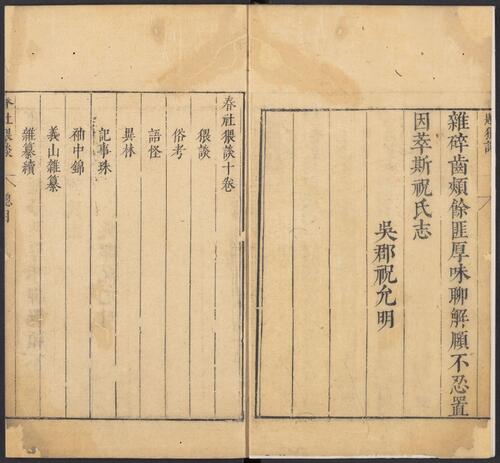 雜碎齒頰餘匪厚味聊解頤不忍置
因萃斯祝氏志
吳郡祝允明
春社猥談十卷
猥談
俗考
語怪
異林
記事珠
袖中錦
義山雜纂
雜纂續
春社猥談
總目